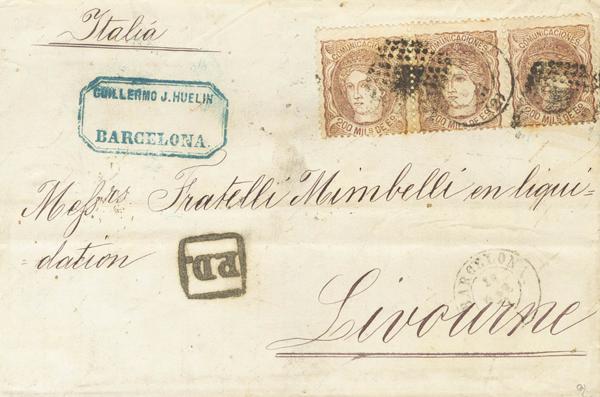 Italia
COMUNICACIONES
200 MILs DE Eo
COMUNICACIONES
200 MILs DE Eo
COMUNICACIONES
200 MILs DE Eo
GUILLERMO J. HUELIN
BARCELONA.
Messrs Fratelli Mimbelli en liqui=
=dation
P.D.
BARCELONA
Livourne